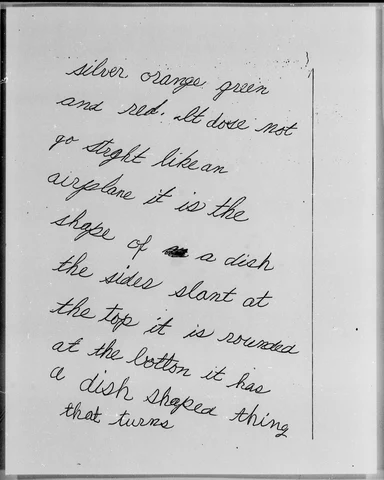 silver orange green
and red. It dose not
go strght like an
airplane it is the
shape of a dish
the sides slant at
the top it is rounded
at the botton it has
a dish shaped thing
that turns